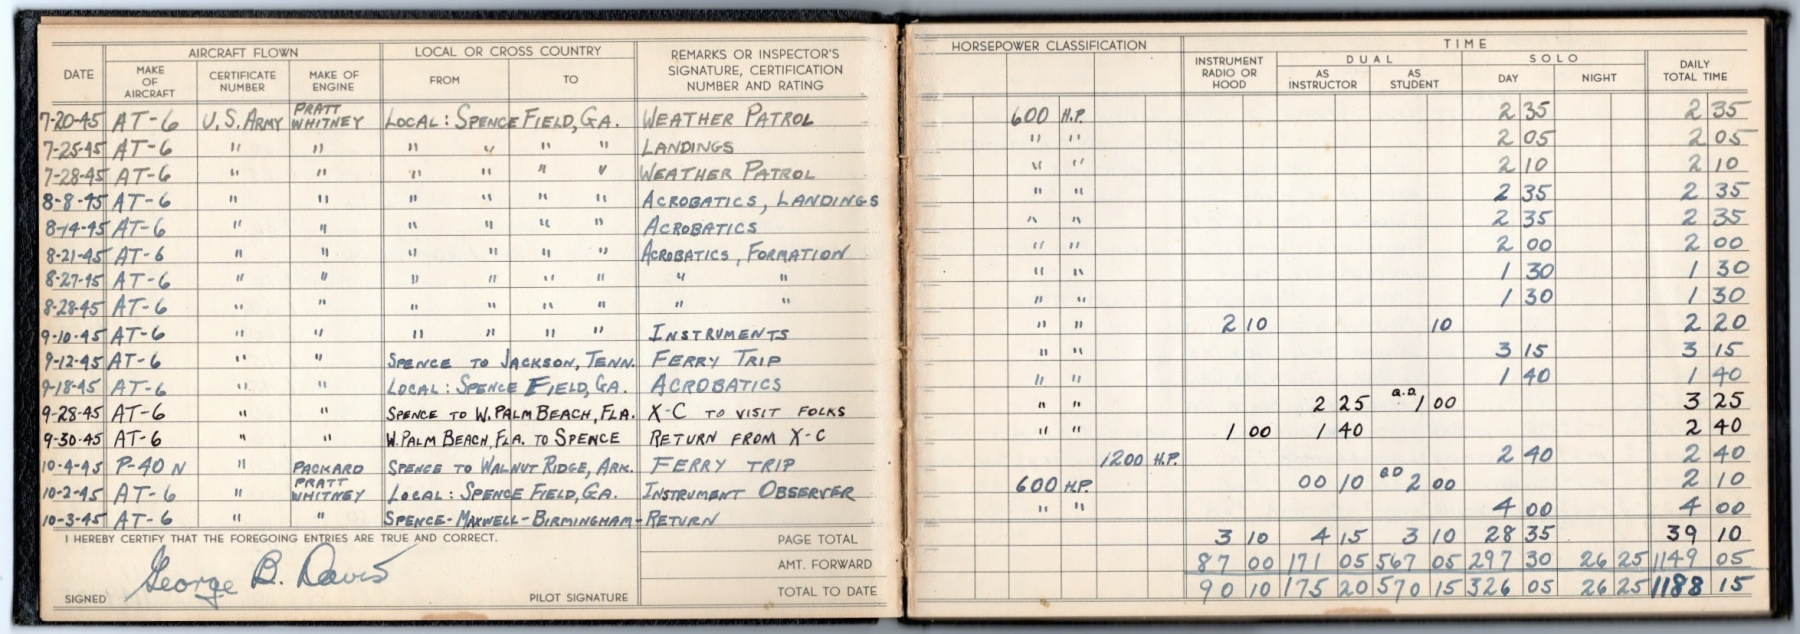 AIRCRAFT FLOWN LOCAL OR CROSS COUNTRY REMARKS OR INSPECTOR'S SIGNATURE, CERTIFICATION NUMBER AND RATING HORSEPOWER CLASSIFICATION TIME
DATE MAKE OF AIRCRAFT CERTIFICATE NUMBER MAKE OF ENGINE FROM TO INSTRUMENT RADIO OR HOOD DUAL AS INSTRUCTOR AS STUDENT SOLO DAY NIGHT DAILY TOTAL TIME
7-20-45 AT-6 U.S. ARMY PRATT WHITNEY LOCAL: SPENCE FIELD, GA. WEATHER PATROL 600 H.P. 2 35 2 35
7-25-45 AT-6 " " " " " " LANDINGS " " 2 05 2 05
7-28-45 AT-6 " " " " " " WEATHER PATROL " " 2 10 2 10
8-8-45 AT-6 " " " " " " ACROBATICS, LANDINGS " " 2 35 2 35
8-14-45 AT-6 " " " " " " ACROBATICS " " 2 35 2 35
8-21-45 AT-6 " " " " " " ACROBATICS, FORMATION " " 2 00 2 00
8-27-45 AT-6 " " " " " " " " " " 1 30 1 30
8-28-45 AT-6 " " " " " " " " " " 1 30 1 30
9-10-45 AT-6 " " " " " " INSTRUMENTS " " 2 10 10 2 20
9-12-45 AT-6 " " SPENCE TO JACKSON, TENN. FERRY TRIP " " 3 15 3 15
9-18-45 AT-6 " " LOCAL: SPENCE FIELD, GA. ACROBATICS " " 1 40 1 40
9-28-45 AT-6 " " SPENCE TO W. PALM BEACH, FLA. X-C TO VISIT FOLKS " " 2 25 1 00 3 25
9-30-45 AT-6 " " W. PALM BEACH, FLA. TO SPENCE RETURN FROM X-C " " 1 00 1 40 2 40
10-4-45 P-40 N " PACKARD SPENCE TO WALNUT RIDGE, ARK. FERRY TRIP 1200 H.P. 2 40 2 40
10-2-45 AT-6 " PRATT WHITNEY LOCAL: SPENCE FIELD, GA. INSTRUMENT OBSERVER 600 H.P. 00 10 2 00 2 10
10-3-45 AT-6 " " SPENCE-MAXWELL-BIRMINGHAM-RETURN " " 4 00 4 00
I HEREBY CERTIFY THAT THE FOREGOING ENTRIES ARE TRUE AND CORRECT. PAGE TOTAL 3 10 4 15 3 10 28 35 39 10
AMT. FORWARD 87 00 171 05 567 05 297 30 26 25 1149 05
SIGNED George B. Davis PILOT SIGNATURE TOTAL TO DATE 90 10 175 20 570 15 326 05 26 25 1188 15